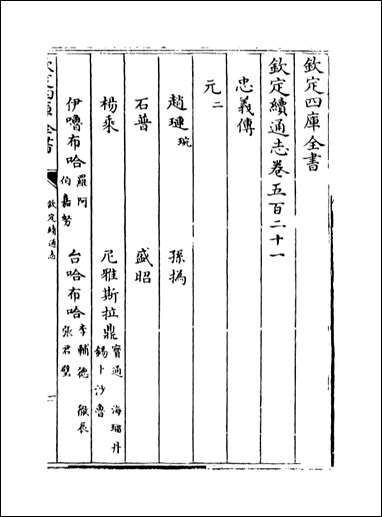 欽定四庫全書
欽定續通志卷五百二十一
忠義傳
元二
趙璉琬 孫撝
石普 盛昭
楊乘 尼雅斯拉鼎寶通 海瑠丹錫卜沙魯
伊嚕布哈羅阿伯嘉努 台哈布哈李輔德 徽辰張君璧
欽定四庫全書 欽定續通志 一